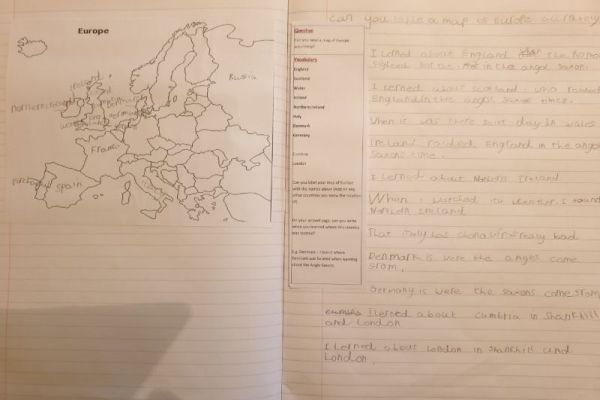 Europe
Russia
Northern Ireland
France
Spain
Question
Can you label a map of Europe accurately?
Vocabulary
England
Scotland
Wales
Ireland
Northern Ireland
Italy
Denmark
Germany
Cumbria
London
Can you label your map of Europe
with the names above and any
other countries you know the location
of?
On your answer page, can you write
when you learned where this country
was located?
E.g. Denmark – I learnt where
Denmark was located when learning
about the Anglo Saxons.
Can you lable a map of Europe
I lerned about England when the Roma
I lerned about scotland who raided
England in the anglo saxons times.
When it was there saint day in Wales
Ireland raided England in the anglo
saxons time.
I lerned about Northern Ireland
When I watched its weather I found
Northern Ireland
That Italy has corona virus really bad
Denmark is were the angles come
from.
Germany is were the saxons come from
I lerned about Cumbria in Shankhill
and London
I lerned about London in Shankhill and
London.